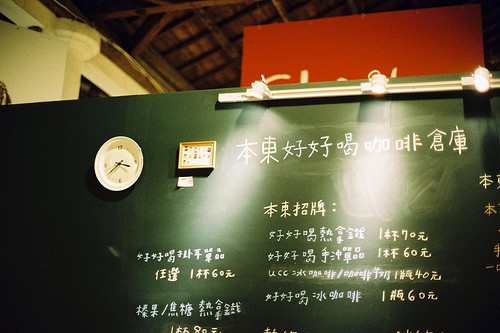 本東好好喝咖啡倉庫
本東招牌：
好好喝熱拿鐵 1杯70元
好好喝手沖單品 1杯60元
ucc 冰咖啡/咖啡牛奶 1瓶40元
好好喝冰咖啡 1瓶60元
好好喝掛耳單品
任選 1杯60元
榛果/焦糖 熱拿鐵
1杯80元